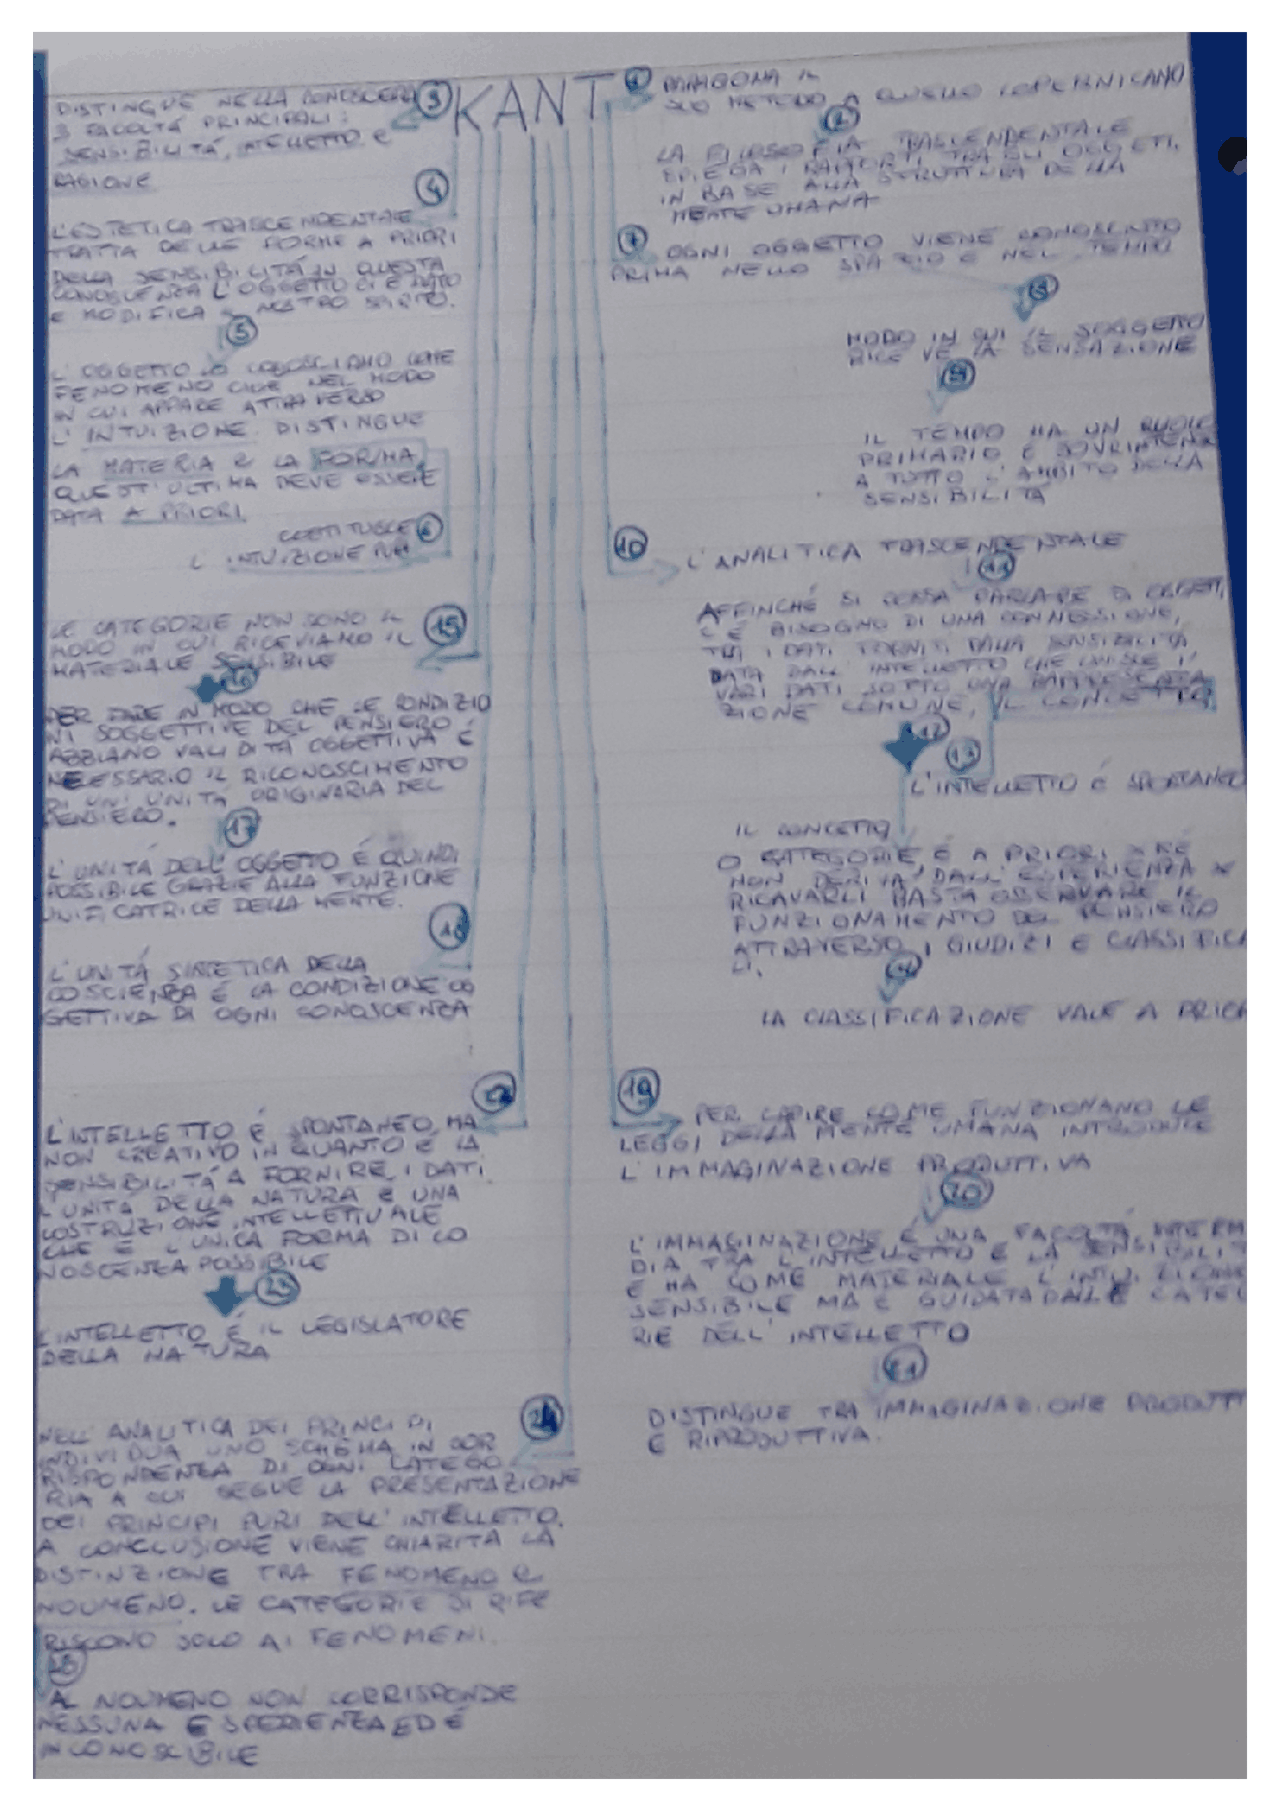 KANT
1 PARAGONA IL
SUO METODO A QUELLO COPERNICANO
2
LA FILOSOFIA TRASCENDENTALE
SPIEGA I RAPPORTI TRA GLI OGGETTI,
IN BASE ALLA STRUTTURA DELLA
MENTE UMANA
3
DISTINGUE NELLA CONOSCENZA
3 FACOLTÁ PRINCIPALI:
SENSIBILITÁ, INTELLETTO E
RAGIONE
4
L'ESTETICA TRASCENDENTALE
TRATTA DELLE FORME A PRIORI
DELLA SENSIBILITÁ IN QUESTA
CONOSCENZA L'OGGETTO CI É DATO
E MODIFICA NOSTRO SPIRITO.
5
L'OGGETTO LO CONOSCIAMO COME
FENOMENO CIOÉ NEL MODO
IN CUI APPARE ATTRAVERSO
L'INTUIZIONE. DISTINGUE
LA MATERIA E LA FORMA,
QUEST'ULTIMA DEVE ESSERE
DATA A PRIORI
COSTITUISCE 6
L'INTUIZIONE PURA
7 OGNI OGGETTO VIENE CONOSCIUTO
PRIMA NELLO SPAZIO E NEL TEMPO
8
MODO IN CUI IL SOGGETTO
RICEVE LA SENSAZIONE
9
IL TEMPO HA UN RUOLO
PRIMARIO E SOVRINTENDE
A TUTTO L'AMBITO DELLA
SENSIBILITÁ
10 L'ANALITICA TRASCENDENTALE
11
AFFINCHÉ SI POSSA PARLARE DI OGGETTI,
C'É BISOGNO DI UNA CONNESSIONE,
TRA I DATI FORNITI DALLA SENSIBILITÁ
DATA DALL'INTELLETTO CHE UNISCE I
VARI DATI SOTTO UNA RAPPRESENTA
ZIONE COMUNE, IL CONCETTO
12
13
L'INTELLETTO É SPONTANEO
IL CONCETTO
O CATEGORIE É A PRIORI XKÉ
NON DERIVA DALL'ESPERIENZA X
RICAVARLI BASTA OSSERVARE IL
FUNZIONAMENTO DEL PENSIERO
ATTRAVERSO I GIUDIZI E CLASSIFICA
LI.
14
LA CLASSIFICAZIONE VALE A PRIOR
15
LE CATEGORIE NON SONO IL
MODO IN CUI RICEVIAMO IL
MATERIALE SENSIBILE
16
PER FARE IN MODO CHE LE CONDIZIO
NI SOGGETTIVE DEL PENSIERO
ABBIANO VALIDITÁ OGGETTIVA É
NECESSARIO IL RICONOSCIMENTO
DI UN UNITÁ ORIGINARIA DEL
PENSIERO.
17
L'UNITÁ DELL'OGGETTO É QUINDI
POSSIBILE GRAZIE ALLA FUNZIONE
UNIFICATRICE DELLA MENTE.
18
L'UNITÁ SINTETICA DELLA
COSCIENZA É LA CONDIZIONE OG
GETTIVA DI OGNI CONOSCENZA
19
PER CAPIRE COME FUNZIONANO LE
LEGGI DELLA MENTE UMANA INTRODUCE
L'IMMAGINAZIONE PRODUTTIVA
20
L'IMMAGINAZIONE É UNA FACOLTÁ INTERM
DIA TRA L'INTELLETTO E LA SENSIBILIT
E HA COME MATERIALE L'INTUIZIONE
SENSIBILE MA É GUIDATA DALLE CATEG
RIE DELL'INTELLETTO
21
DISTINGUE TRA IMMAGINAZIONE PRODUTT
E RIPRODUTTIVA.
22
L'INTELLETTO É SPONTANEO MA
NON CREATIVO IN QUANTO É LA
SENSIBILITÁ A FORNIRE I DATI.
L'UNITÁ DELLA NATURA É UNA
COSTRUZIONE INTELLETTUALE
CHE É L'UNICA FORMA DI CO
NOSCENZA POSSIBILE
23
L'INTELLETTO É IL LEGISLATORE
DELLA NATURA
24
NELL'ANALITICA DEI PRINCIPI
INDIVIDUA UNO SCHEMA IN COR
RISPONDENZA DI OGNI CATEGO
RIA A CUI SEGUE LA PRESENTAZIONE
DEI PRINCIPI PURI DELL'INTELLETTO.
A CONCLUSIONE VIENE CHIARITA LA
DISTINZIONE TRA FENOMENO E
NOUMENO. LE CATEGORIE SI RIFE
RISCONO SOLO AI FENOMENI.
25
AL NOUMENO NON CORRISPONDE
NESSUNA ESPERIENZA ED É
INCONOSCIBILE